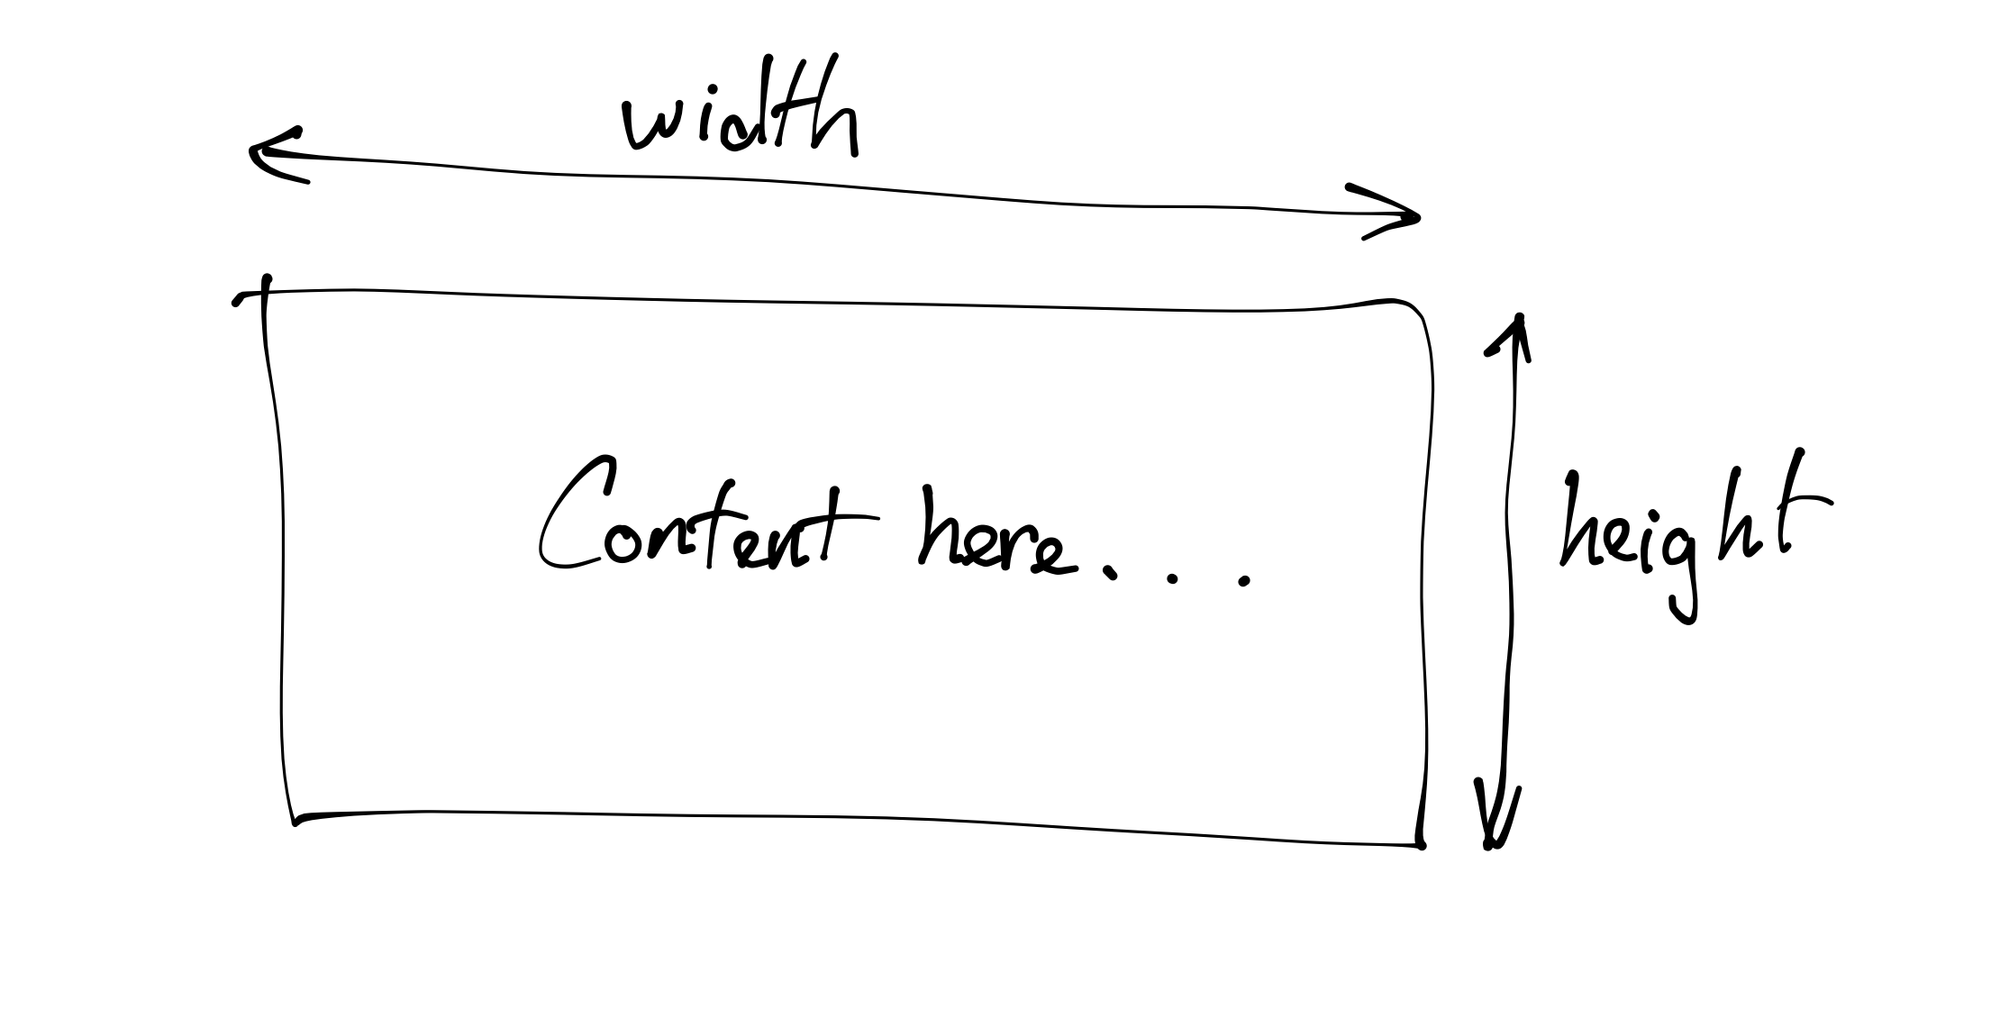 width
Content here...
height